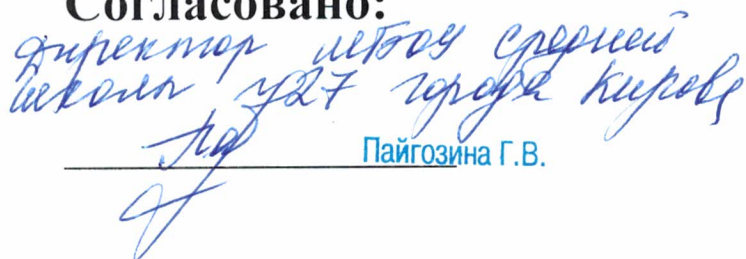 Согласовано:
Директор МБОУ средней
школы №27 города Кирова
Пайгозина Г.В.